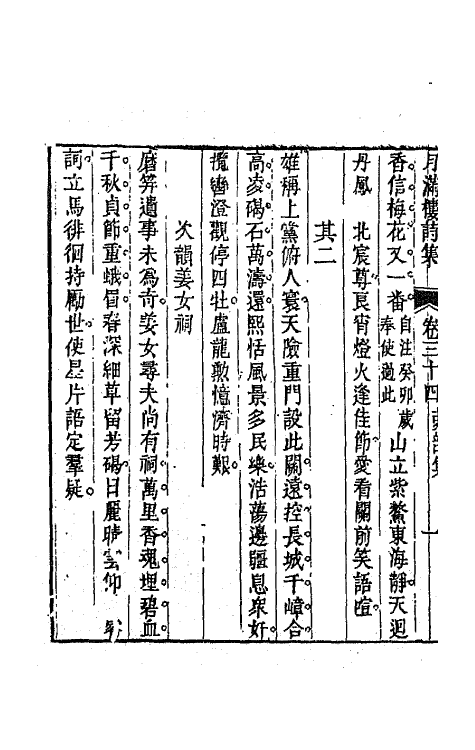 月滿樓詩集 卷三十四
香信梅花又一番 自注癸卯歲奉使過此 山立紫鰲東海靜天迴
丹鳳 北宸尊艮宵燈火逢佳節愛看關前笑語喧
其二
雄稱上黨俯人寰天險重門設此關遠控長城千嶂合
高凌碣石萬濤還熙恬風景多民樂浩蕩邊疆息衆奸
攬轡澄觀停四牡盧龍歎憶濟時艱
次韻姜女祠
磨笄遺事未爲奇姜女尋夫尚有祠萬里香魂埋碧血
千秋貞節重蛾眉春深細草留芳碣日麗晴雲仰
詞立馬徘徊持勵世使星片語定羣疑